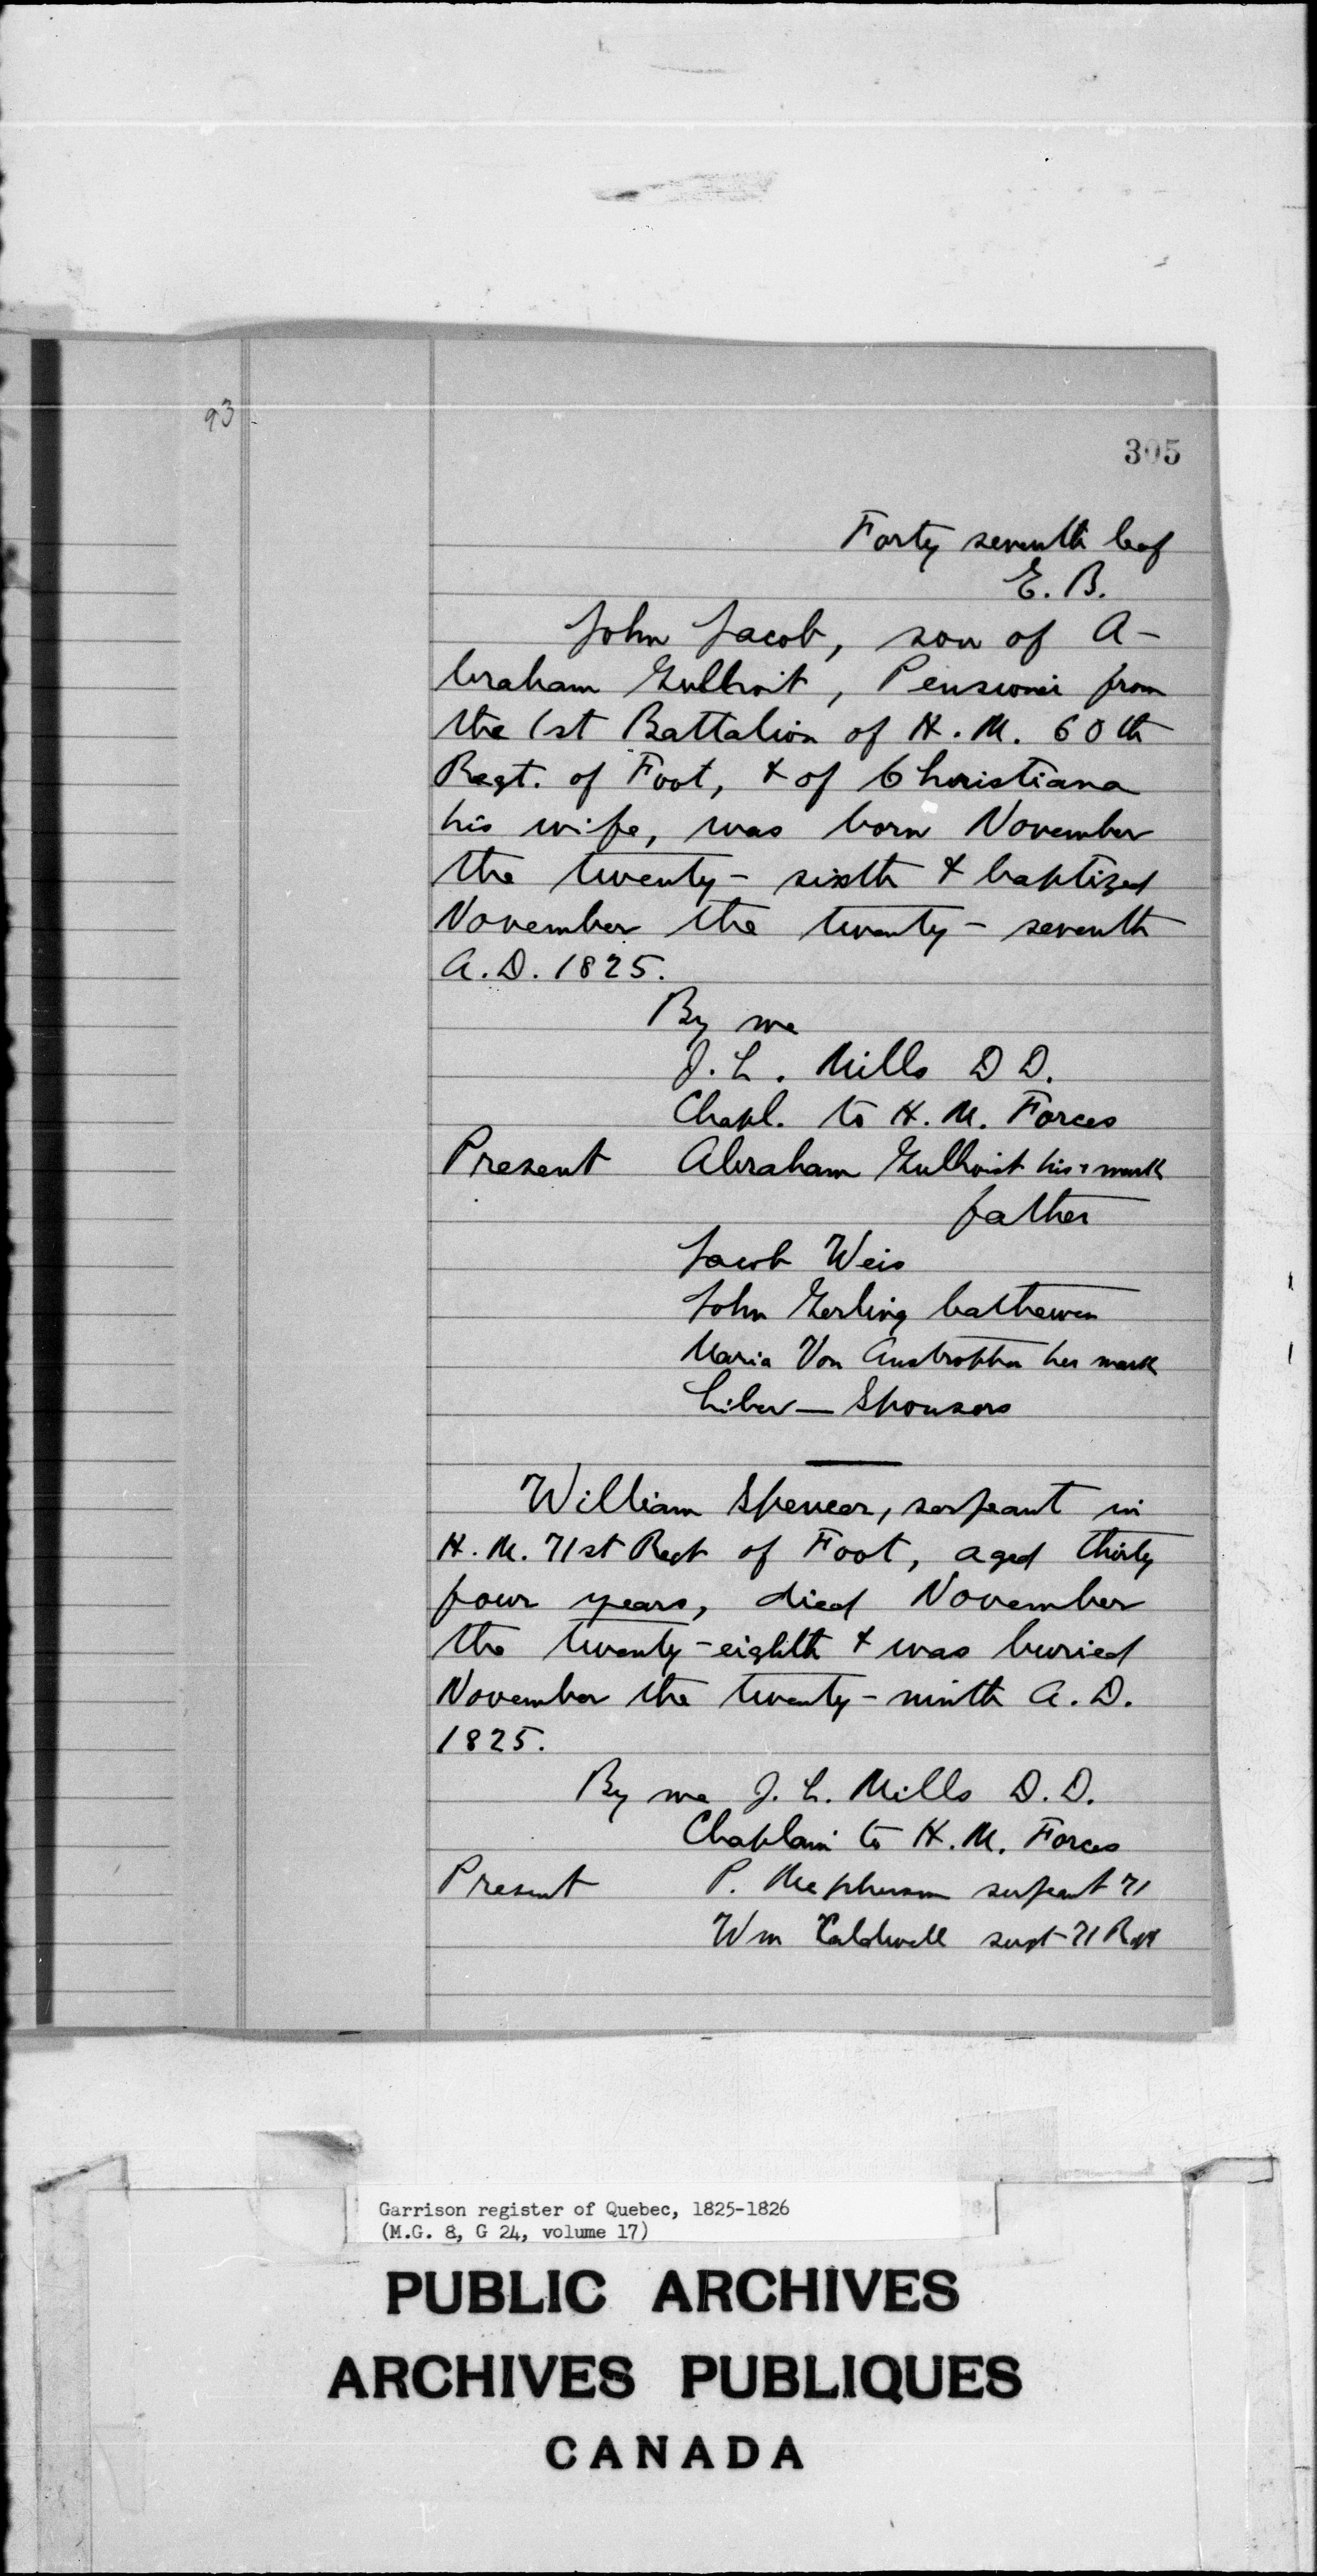 93
305
Forty seventh leaf
E. B.
John Jacob, son of A-
braham Gullvoit, Pensioner from
the 1st Battalion of H. M. 60th
Regt. of Foot, & of Christiana
his wife, was born November
the twenty-sixth & baptized
November the twenty-seventh
A.D. 1825.
By me
J. L. Mills D D.
Chapl. to H. M. Forces
Present Abraham his x mark
father
Jacob Weis
John Gerling
Maria Von her mark
Sponsors
William Spencer, serjeant in
H. M. 71st Regt of Foot, aged thirty
four years, died November
the twenty-eighth & was buried
November the twenty-ninth A. D.
1825.
By me J. L. Mills D. D.
Chaplain to H. M. Forces
Present P. Mcpherson serjeant 71
Wm Caldwell serjt 71 Regt
Garrison register of Quebec, 1825-1826
(M.G. 8, G 24, volume 17)
PUBLIC ARCHIVES
ARCHIVES PUBLIQUES
CANADA